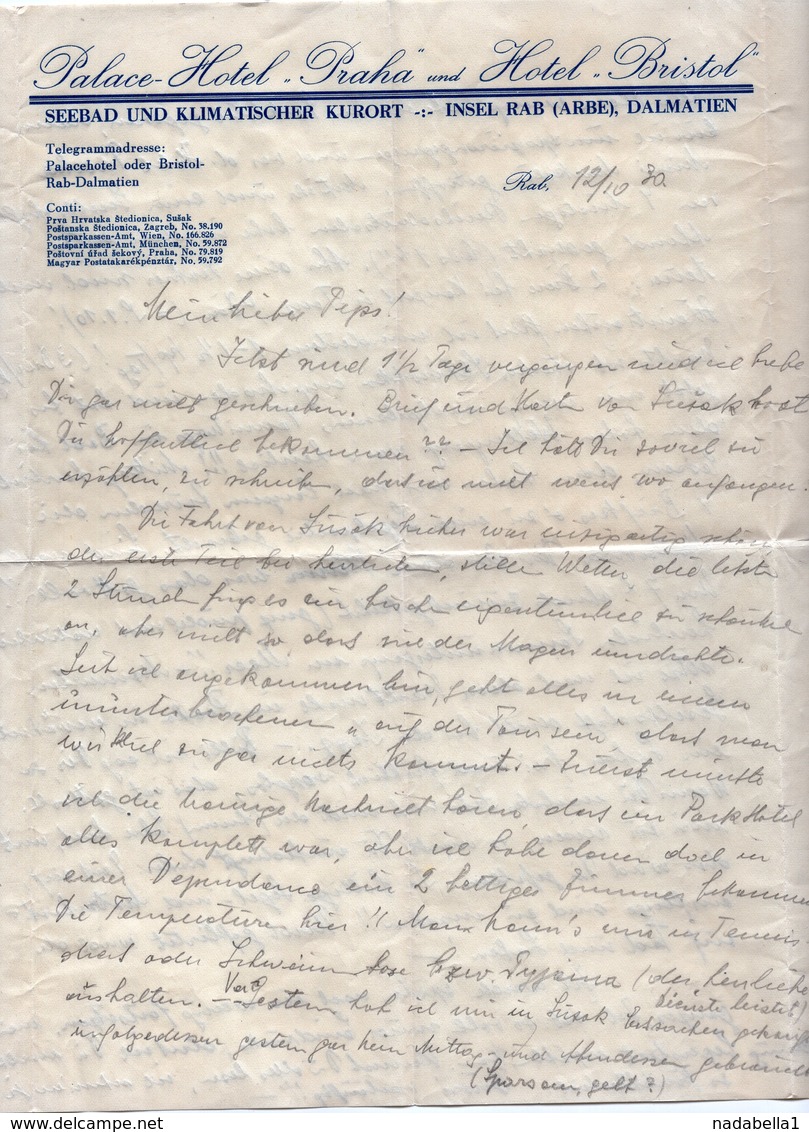 Palace-Hotel „Praha" und Hotel „Bristol"
SEEBAD UND KLIMATISCHER KURORT -:- INSEL RAB (ARBE), DALMATIEN
Telegrammadresse:
Palacehotel oder Bristol-
Rab-Dalmatien
Rab, 12/10 30
Conti:
Prva Hrvatska Štedionica, Sušak
Poštanska Štedionica, Zagreb, No. 38.190
Postsparkassen-Amt, Wien, No. 166.826
Postsparkassen-Amt, München, No. 59.872
Poštovní úřad šekový, Praha, No. 79.819
Magyar Postatakarékpénztár, No. 59.792
Mein lieber Pips!
Jetzt sind 1½ Tage vergangen und ich habe
Dir gar nicht geschrieben. Brief und Karte von Sušak hast
Du hoffentlich bekommen?? – Ich hätt Dir soviel zu
erzählen, zu schreiben, dass ich nicht weiss wo anfangen.
Die Fahrt von Sušak hieher war einzigartig schön
der erste Teil bei herrlichem, stillen Wetter, die letzten
2 Stunden fing es ein bischen eigentümlich zu schaukeln
an, aber nicht so, dass sich der Magen umdrehte.
Seit ich angekommen bin, geht alles in einem
ununterbrochenen „auf der Tour sein" dass man
wirklich zu gar nichts kommt. – Zuerst musste
ich die traurige Nachricht hören, dass im Park Hotel
alles komplett war, aber ich habe dann doch in
einer Dependance ein 2 bettiges Zimmer bekommen
Die Temperaturen hier!! Man kann's nur in Tennis
dress oder Schwimmhose bzw. Pyjama (der herrliche
Dienste leistet)
aushalten. – Vorgestern hab ich mir in Sušak gekauft
infolgedessen gestern gar kein Mittag- und Abendessen gebraucht
(Sparsam, gelt?)
nadabella1